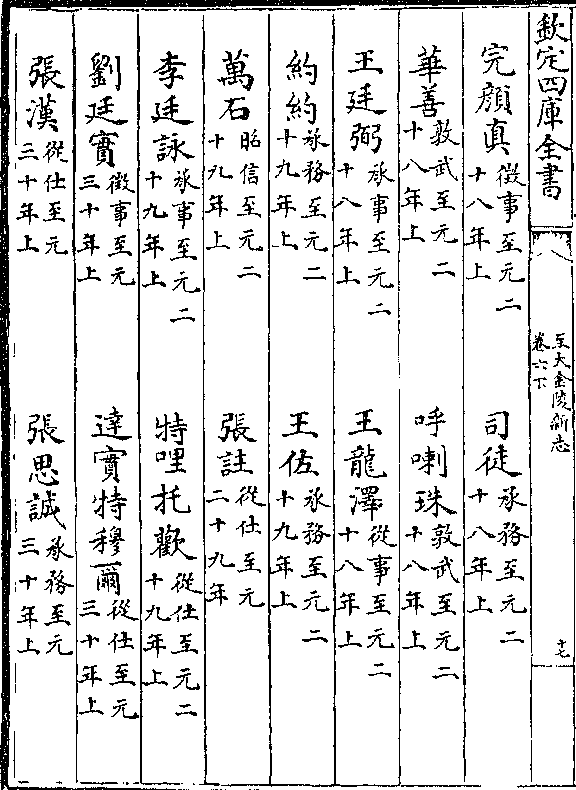 欽定四庫全書
至大金陵新志
卷六下
十七
完顔真 徵事至元二十八年上 司徒 承務至元二十八年上
華善 敦武至元二十八年上 呼喇珠 敦武至元二十八年上
王廷弼 承事至元二十八年上 王龍澤 從事至元二十八年上
約約 承務至元二十九年上 王佐 承務至元二十九年上
萬石 昭信至元二十九年上 張註 從仕至元二十九年
李廷詠 承事至元二十九年上 特哩托歡 從仕至元二十九年上
劉廷實 徵事至元三十年上 達實特穆爾 從仕至元三十年上
張漢 從仕至元三十年上 張思誠 承務至元三十年上